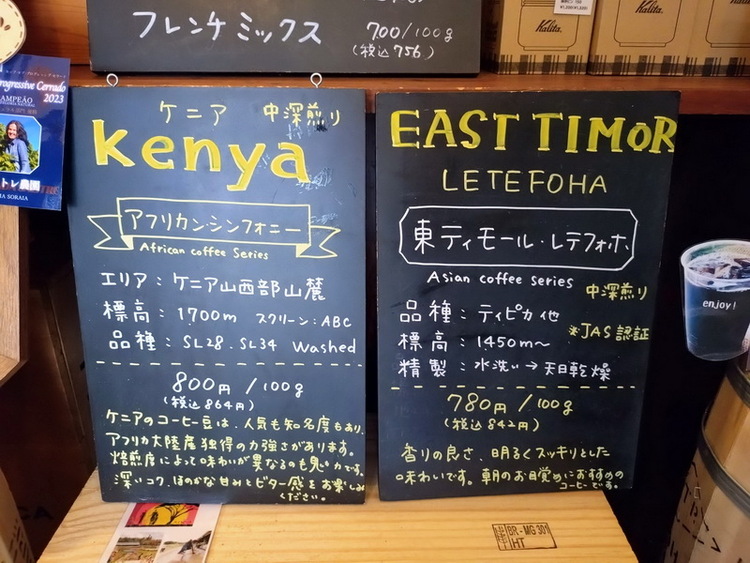 フレンチミックス
700/100g
(税込756)
Kalita
Kalita
rogressive Cerrado
2023
CAMPEÃO
トレ農園
HA SORAIA
ケニア 中深煎り
Kenya
アフリカンシンフォニー
African coffee Series
エリア:ケニア山西部山麓
標高:1700m スクリーン:ABC
品種:SL28.SL34 Washed
800円/100g
(税込864円)
ケニアのコーヒー豆は、人気も知名度もあり、
アフリカ大陸産独得の力強さがあります。
焙煎度によって味わいが異なるのも魅力です。
深いコク、ほのかな甘みとビター感をお楽しみ
ください。
EAST TIMOR
LETEFOHA
東ティモール・レテフォホ
Asian coffee series
中深煎り
品種:ティピカ他
標高:1450m〜
*JAS認証
精製:水洗い→天日乾燥
780円/100g
(税込842円)
香りの良さ、明るくスッキリとした
味わいです。朝のお目覚めにおすすめの
コーヒーです。
enjoy!
BR-MG 301
HT